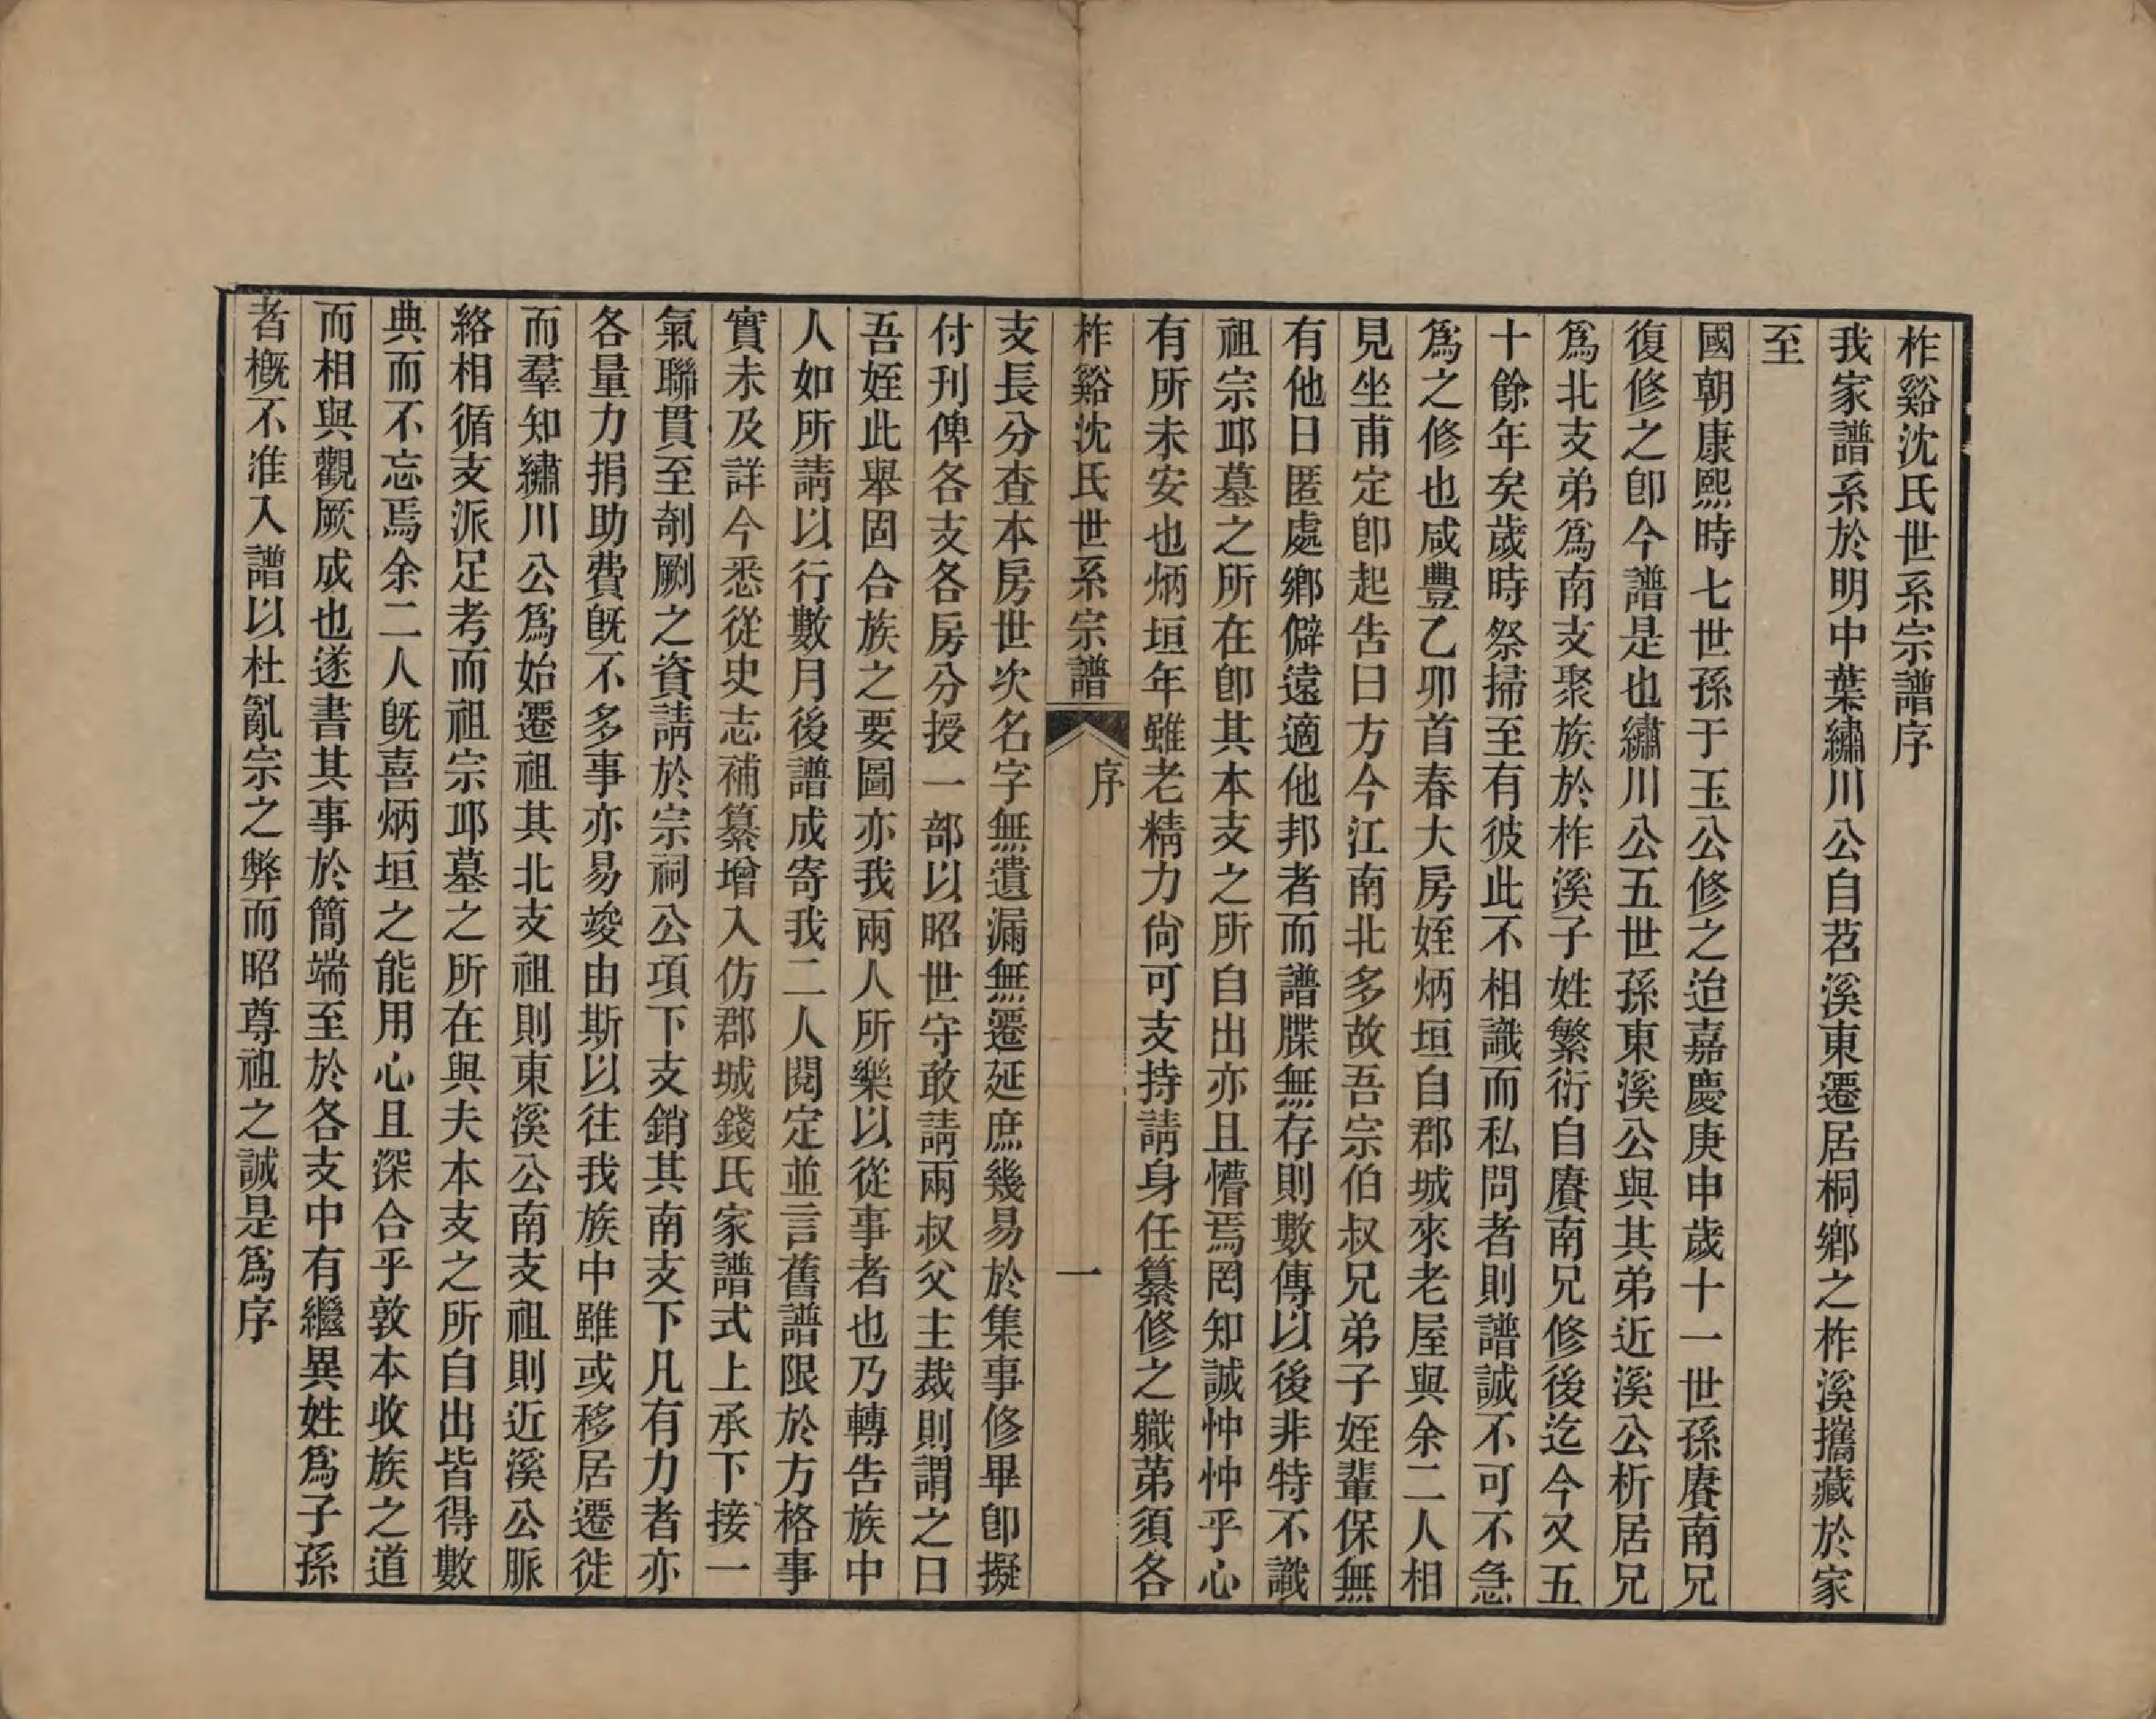 柞谿沈氏世系宗譜序
我家譜系於明中葉繡川公自苕溪東遷居桐鄉之柞溪攜藏於家
至
國朝康熙時七世孫于玉公修之迨嘉慶庚申歲十一世孫賡南兄
復修之卽今譜是也繡川公五世孫東溪公與其弟近溪公析居兄
爲北支弟爲南支聚族於柞溪子姓繁衍自賡南兄修後迄今又五
十餘年矣歲時祭掃至有彼此不相識而私問者則譜誠不可不急
爲之修也咸豐乙卯首春大房姪炳垣自郡城來老屋與余二人相
見坐甫定卽起告曰方今江南北多故吾宗伯叔兄弟子姪輩保無
有他日匿處鄉僻遠適他邦者而譜牒無存則數傳以後非特不識
祖宗邱墓之所在卽其本支之所自出亦且懵焉罔知誠忡忡乎心
有所未安也炳垣年雖老精力尙可支持請身任纂修之職第須各
柞谿沈氏世系宗譜
序
一
支長分查本房世次名字無遺漏無遷延庶幾易於集事修畢卽擬
付刊俾各支各房分授一部以昭世守敢請兩叔父主裁則謂之曰
吾姪此舉固合族之要圖亦我兩人所樂以從事者也乃轉告族中
人如所請以行數月後譜成寄我二人閱定並言舊譜限於方格事
實未及詳今悉從史志補纂增入仿郡城錢氏家譜式上承下接一
氣聯貫至剞劂之資請於宗祠公項下支銷其南支下凡有力者亦
各量力捐助費旣不多事亦易竣由斯以往我族中雖或移居遷徙
而羣知繡川公爲始遷祖其北支祖則東溪公南支祖則近溪公脈
絡相循支派足考而祖宗邱墓之所在與夫本支之所自出皆得數
典而不忘焉余二人旣喜炳垣之能用心且深合乎敦本收族之道
而相與觀厥成也遂書其事於簡端至於各支中有繼異姓爲子孫
者槪不准入譜以杜亂宗之弊而昭尊祖之誠是爲序